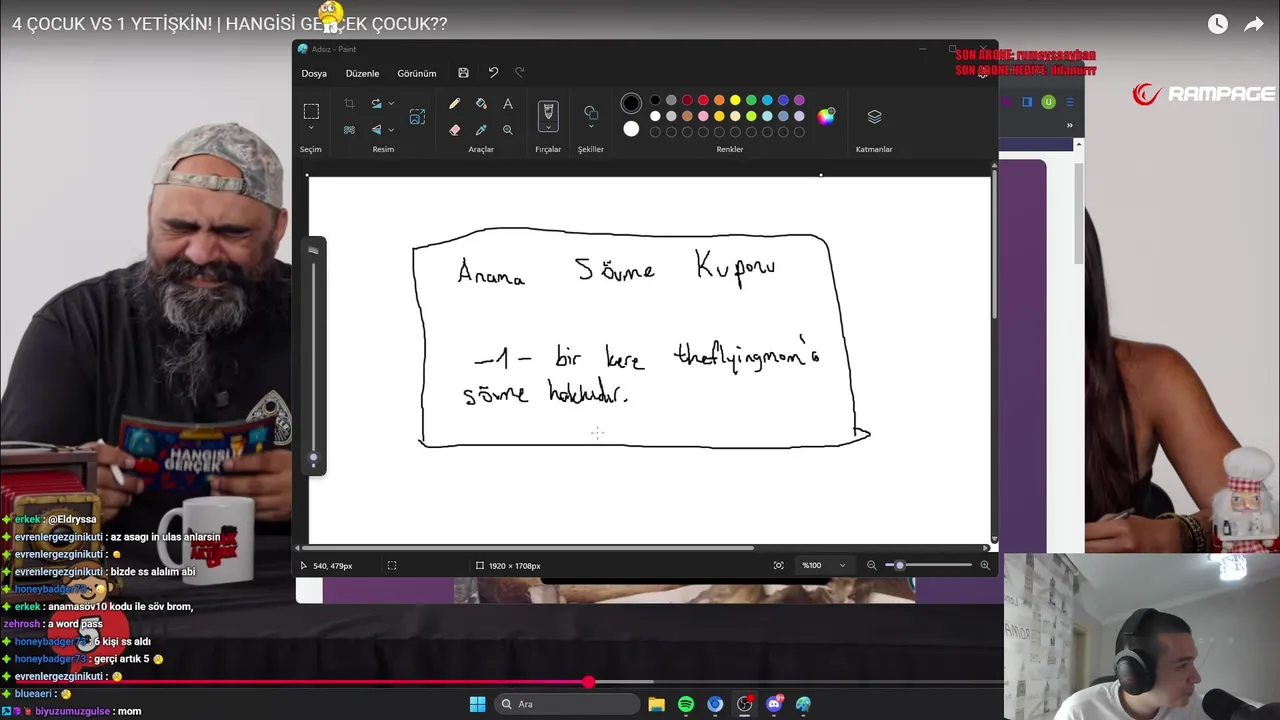 4 ÇOCUK VS 1 YETİŞKİN! | HANGİSİ GERÇEK ÇOCUK??
x3
Adsız - Paint
SON ABONE: rumeysaayhan
SON ABONE HEDİYE: dilanurrr
RAMPAGE
Dosya Düzenle Görünüm
U
Seçim Resim Araçlar Fırçalar Şekiller Renkler Katmanlar
Anama Sövme Kuponu
-1- bir kere theflyingmom'a
sövme hakkıdır.
HANGİSİ
GERÇEK
erkek : @Eldryssa
evrenlergezginikuti : az asagı in ulas anlarsin
evrenlergezginikuti :
evrenlergezginikuti : bizde ss alalım abi
honeybadger73 :
erkek : anamasöv10 kodu ile söv brom,
zehrosh : a word pass
honeybadger73 : 6 kişi ss aldı
honeybadger73 : gerçi artık 5
evrenlergezginikuti :
blueaeri :
biyuzumuzgulse : mom
5
540, 479px
1920 × 1708px
%100
Ara